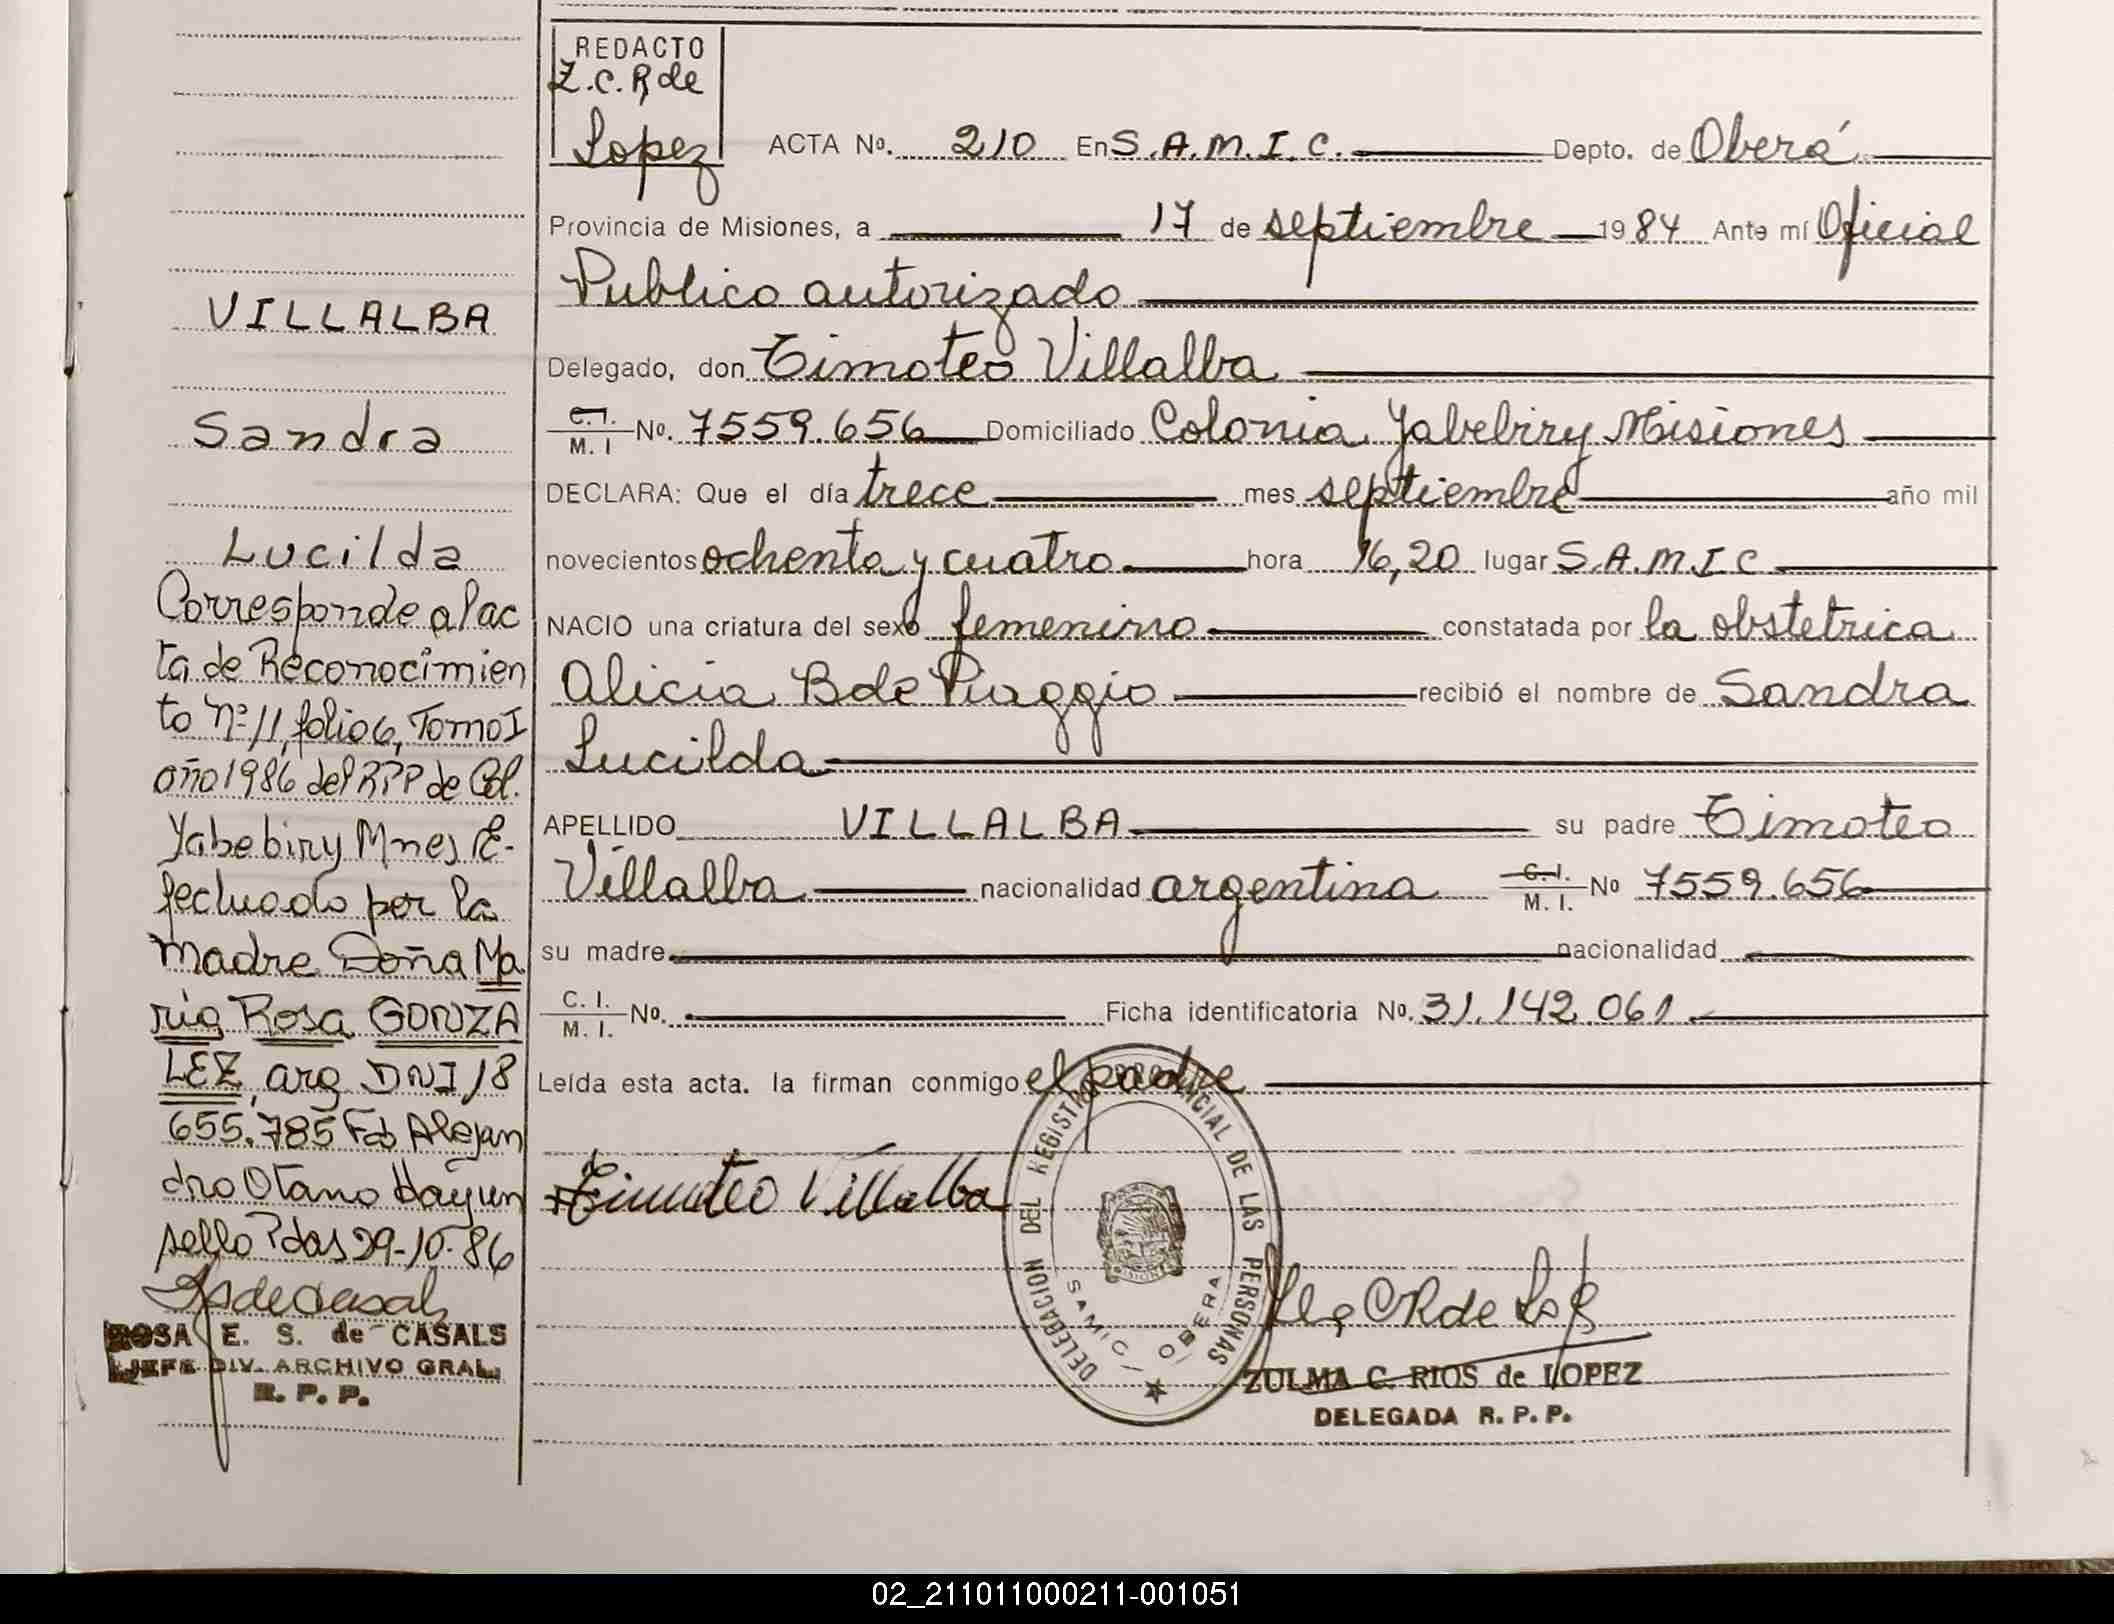 REDACTO
Z.C.R de
Lopez
ACTA No. 210 En S.A.M.I.C. Depto. de Oberá
Provincia de Misiones, a 17 de septiembre 1984 Ante mí Oficial
Publico autorizado
Delegado, don Timoteo Villalba
C.I. M.I No. 7559.656 Domiciliado Colonia Yabebiry Misiones
DECLARA: Que el día trece mes septiembre año mil
novecientos ochenta y cuatro hora 16,20 lugar S.A.M.I.C
NACIO una criatura del sexo femenino constatada por la obstetrica
Alicia B de Piaggio recibió el nombre de Sandra
Lucilda
APELLIDO VILLALBA su padre Timoteo
Villalba nacionalidad argentina C.I. M.I. No 7559.656
su madre nacionalidad
C.I. M.I. No. Ficha identificatoria No. 31.142.061
Leída esta acta. la firman conmigo el padre
Timoteo Villalba
DELEGACION DEL REGISTRO PROVINCIAL DE LAS PERSONAS
SAMIC / OBERA
ZULMA C. RIOS de LOPEZ
DELEGADA R.P.P.
VILLALBA
Sandra
Lucilda
Corresponde al ac
ta de Reconocimien
to Nº 11, folio 6, Tomo I
año 1986 del RPP de Col.
Yabebiry Mnes E-
fectuado por la
madre Doña Ma
ria Rosa GONZA
LEZ, arg DNI 18
655.785 Fdo Alejan
dro Otano Hay un
sello Pdas 29-10-86
ROSA E. S. de CASALS
JEFE DIV. ARCHIVO GRAL.
R. P. P.
02_211011000211-001051